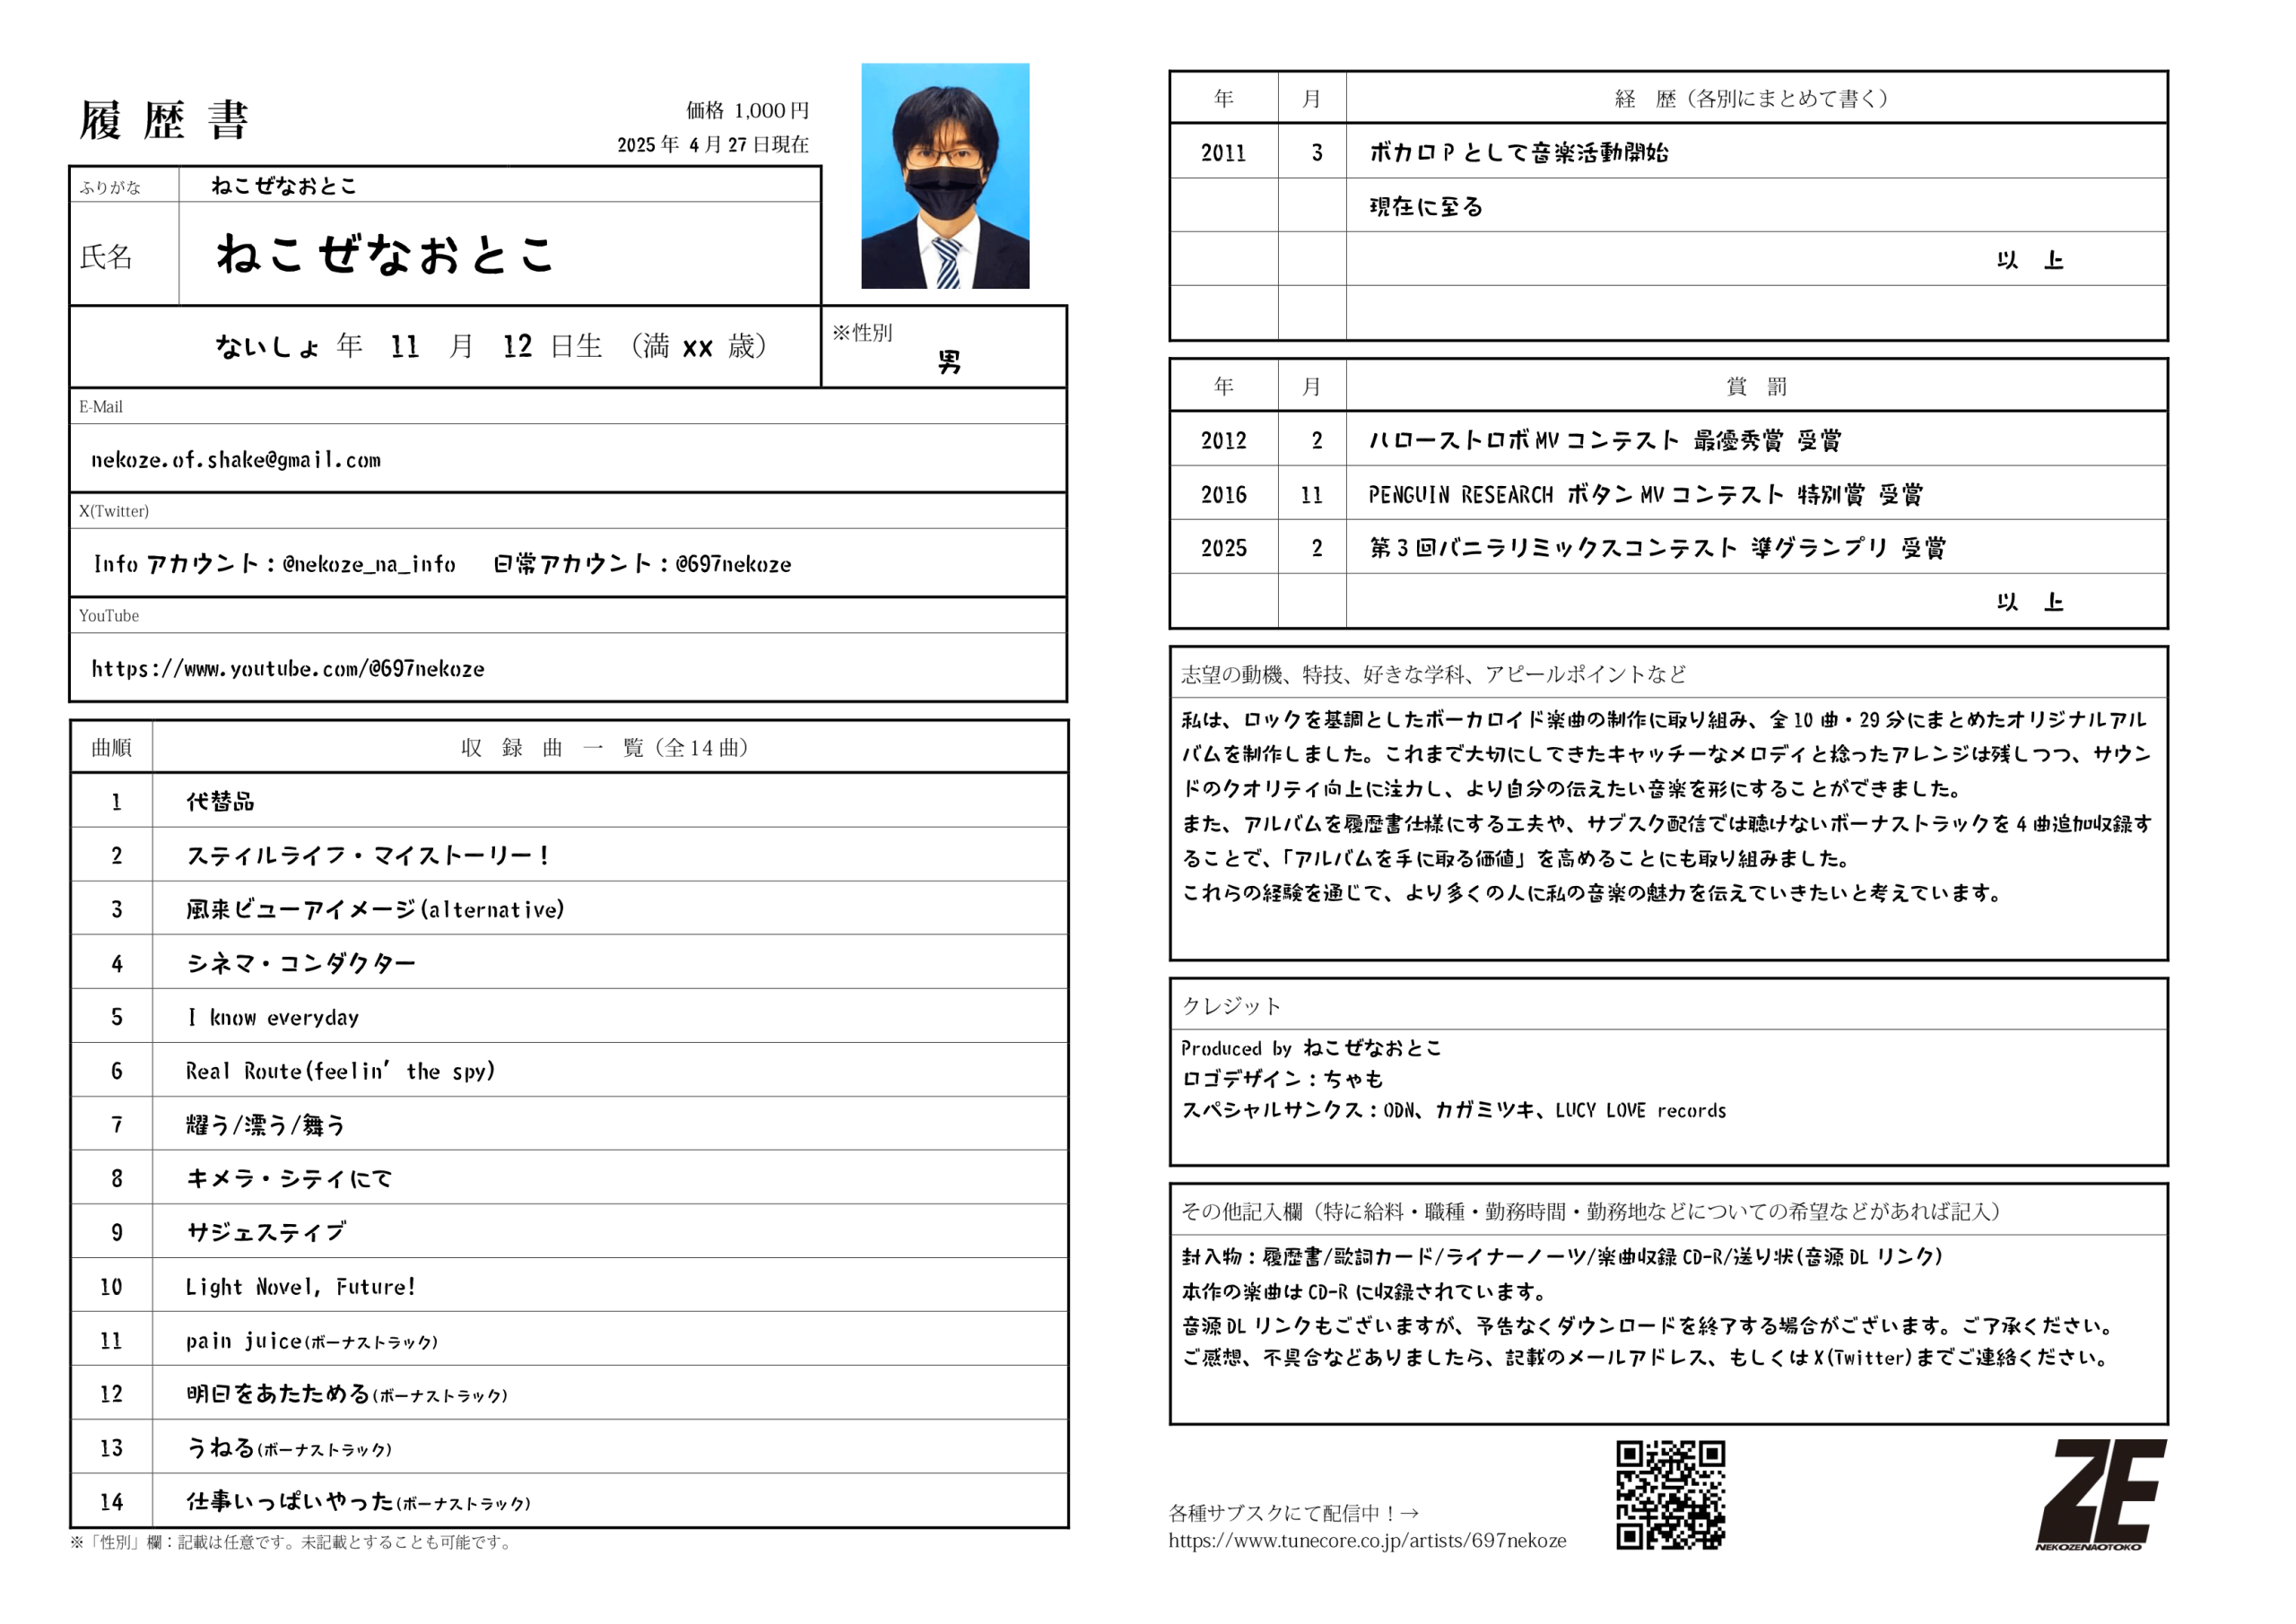 履歴書
価格 1,000円
2025年 4月27日現在
ふりがな ねこぜなおとこ
氏名 ねこぜなおとこ
ないしょ 年 11 月 12 日生 (満 xx 歳)
※性別
男
E-Mail
nekoze.of.shake@gmail.com
X(Twitter)
Infoアカウント:@nekoze_na_info 日常アカウント:@697nekoze
YouTube
https://www.youtube.com/@697nekoze
曲順 収 録 曲 一 覧(全14曲)
1 代替品
2 スティルライフ・マイストーリー!
3 風来ビューアイメージ(alternative)
4 シネマ・コンダクター
5 I know everyday
6 Real Route(feelin' the spy)
7 耀う/漂う/舞う
8 キメラ・シティにて
9 サジェスティブ
10 Light Novel, Future!
11 pain juice(ボーナストラック)
12 明日をあたためる(ボーナストラック)
13 うねる(ボーナストラック)
14 仕事いっぱいやった(ボーナストラック)
※「性別」欄:記載は任意です。未記載とすることも可能です。
年 月 経 歴(各別にまとめて書く)
2011 3 ボカロPとして音楽活動開始
現在に至る
以 上
年 月 賞 罰
2012 2 ハローストロボMVコンテスト 最優秀賞 受賞
2016 11 PENGUIN RESEARCH ボタンMVコンテスト 特別賞 受賞
2025 2 第3回バニラリミックスコンテスト 準グランプリ 受賞
以 上
志望の動機、特技、好きな学科、アピールポイントなど
私は、ロックを基調としたボーカロイド楽曲の制作に取り組み、全10曲・29分にまとめたオリジナルアル
バムを制作しました。これまで大切にしてきたキャッチーなメロディと捻ったアレンジは残しつつ、サウン
ドのクオリティ向上に注力し、より自分の伝えたい音楽を形にすることができました。
また、アルバムを履歴書仕様にする工夫や、サブスク配信では聴けないボーナストラックを4曲追加収録す
ることで、「アルバムを手に取る価値」を高めることにも取り組みました。
これらの経験を通じて、より多くの人に私の音楽の魅力を伝えていきたいと考えています。
クレジット
Produced by ねこぜなおとこ
ロゴデザイン:ちゃも
スペシャルサンクス:ODN、カガミツキ、LUCY LOVE records
その他記入欄(特に給料・職種・勤務時間・勤務地などについての希望などがあれば記入)
封入物:履歴書/歌詞カード/ライナーノーツ/楽曲収録CD-R/送り状(音源DLリンク)
本作の楽曲はCD-Rに収録されています。
音源DLリンクもございますが、予告なくダウンロードを終了する場合がございます。ご了承ください。
ご感想、不具合などありましたら、記載のメールアドレス、もしくはX(Twitter)までご連絡ください。
各種サブスクにて配信中!→
https://www.tunecore.co.jp/artists/697nekoze
ZE
NEKOZENAOTOKO